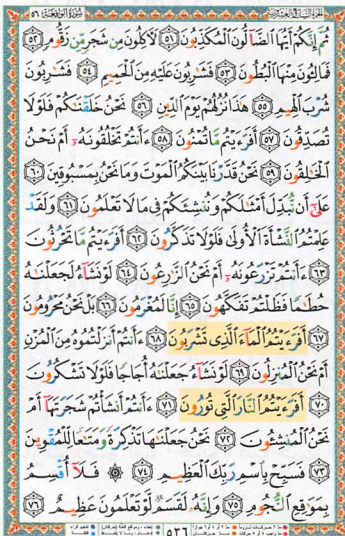 الجزء السابع والعشرون سورة الواقعة ٥٦
ثُمَّ إِنَّكُمْ أَيُّهَا ٱلضَّآلُّونَ ٱلْمُكَذِّبُونَ ٥١ لَءَاكِلُونَ مِن شَجَرٍ مِّن زَقُّومٍ ٥٢
فَمَالِـُٔونَ مِنْهَا ٱلْبُطُونَ ٥٣ فَشَٰرِبُونَ عَلَيْهِ مِنَ ٱلْحَمِيمِ ٥٤ فَشَٰرِبُونَ
شُرْبَ ٱلْهِيمِ ٥٥ هَٰذَا نُزُلُهُمْ يَوْمَ ٱلدِّينِ ٥٦ نَحْنُ خَلَقْنَٰكُمْ فَلَوْلَا
تُصَدِّقُونَ ٥٧ أَفَرَءَيْتُم مَّا تُمْنُونَ ٥٨ ءَأَنتُمْ تَخْلُقُونَهُۥٓ أَمْ نَحْنُ
ٱلْخَٰلِقُونَ ٥٩ نَحْنُ قَدَّرْنَا بَيْنَكُمُ ٱلْمَوْتَ وَمَا نَحْنُ بِمَسْبُوقِينَ ٦٠
عَلَىٰٓ أَن نُّبَدِّلَ أَمْثَٰلَكُمْ وَنُنشِئَكُمْ فِى مَا لَا تَعْلَمُونَ ٦١ وَلَقَدْ
عَلِمْتُمُ ٱلنَّشْأَةَ ٱلْأُولَىٰ فَلَوْلَا تَذَكَّرُونَ ٦٢ أَفَرَءَيْتُم مَّا تَحْرُثُونَ
٦٣ ءَأَنتُمْ تَزْرَعُونَهُۥٓ أَمْ نَحْنُ ٱلزَّٰرِعُونَ ٦٤ لَوْ نَشَآءُ لَجَعَلْنَٰهُ
حُطَٰمًا فَظَلْتُمْ تَفَكَّهُونَ ٦٥ إِنَّا لَمُغْرَمُونَ ٦٦ بَلْ نَحْنُ مَحْرُومُونَ
٦٧ أَفَرَءَيْتُمُ ٱلْمَآءَ ٱلَّذِى تَشْرَبُونَ ٦٨ ءَأَنتُمْ أَنزَلْتُمُوهُ مِنَ ٱلْمُزْنِ
أَمْ نَحْنُ ٱلْمُنزِلُونَ ٦٩ لَوْ نَشَآءُ جَعَلْنَٰهُ أُجَاجًا فَلَوْلَا تَشْكُرُونَ
٧٠ أَفَرَءَيْتُمُ ٱلنَّارَ ٱلَّتِى تُورُونَ ٧١ ءَأَنتُمْ أَنشَأْتُمْ شَجَرَتَهَآ أَمْ
نَحْنُ ٱلْمُنشِـُٔونَ ٧٢ نَحْنُ جَعَلْنَٰهَا تَذْكِرَةً وَمَتَٰعًا لِّلْمُقْوِينَ
٧٣ فَسَبِّحْ بِٱسْمِ رَبِّكَ ٱلْعَظِيمِ ٧٤ فَلَآ أُقْسِمُ
بِمَوَٰقِعِ ٱلنُّجُومِ ٧٥ وَإِنَّهُۥ لَقَسَمٌ لَّوْ تَعْلَمُونَ عَظِيمٌ ٧٦
٥٣٦